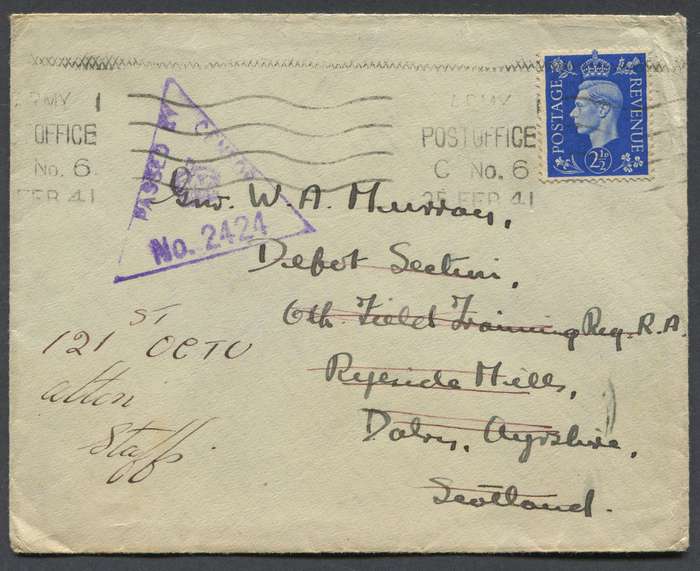 ARMY 1
OFFICE
No. 6
FEB 41
ARMY
POST OFFICE
C No. 6
25 FEB 41
POSTAGE REVENUE
2½D
PASSED BY CENSOR
No. 2424
Gnr. W. A. Murray,
Depot Section,
6th. Field Training Reg. R.A.
Ryeside Mills,
Dalry, Ayrshire,
Scotland.
121 ST OCTU
alton
Staff.